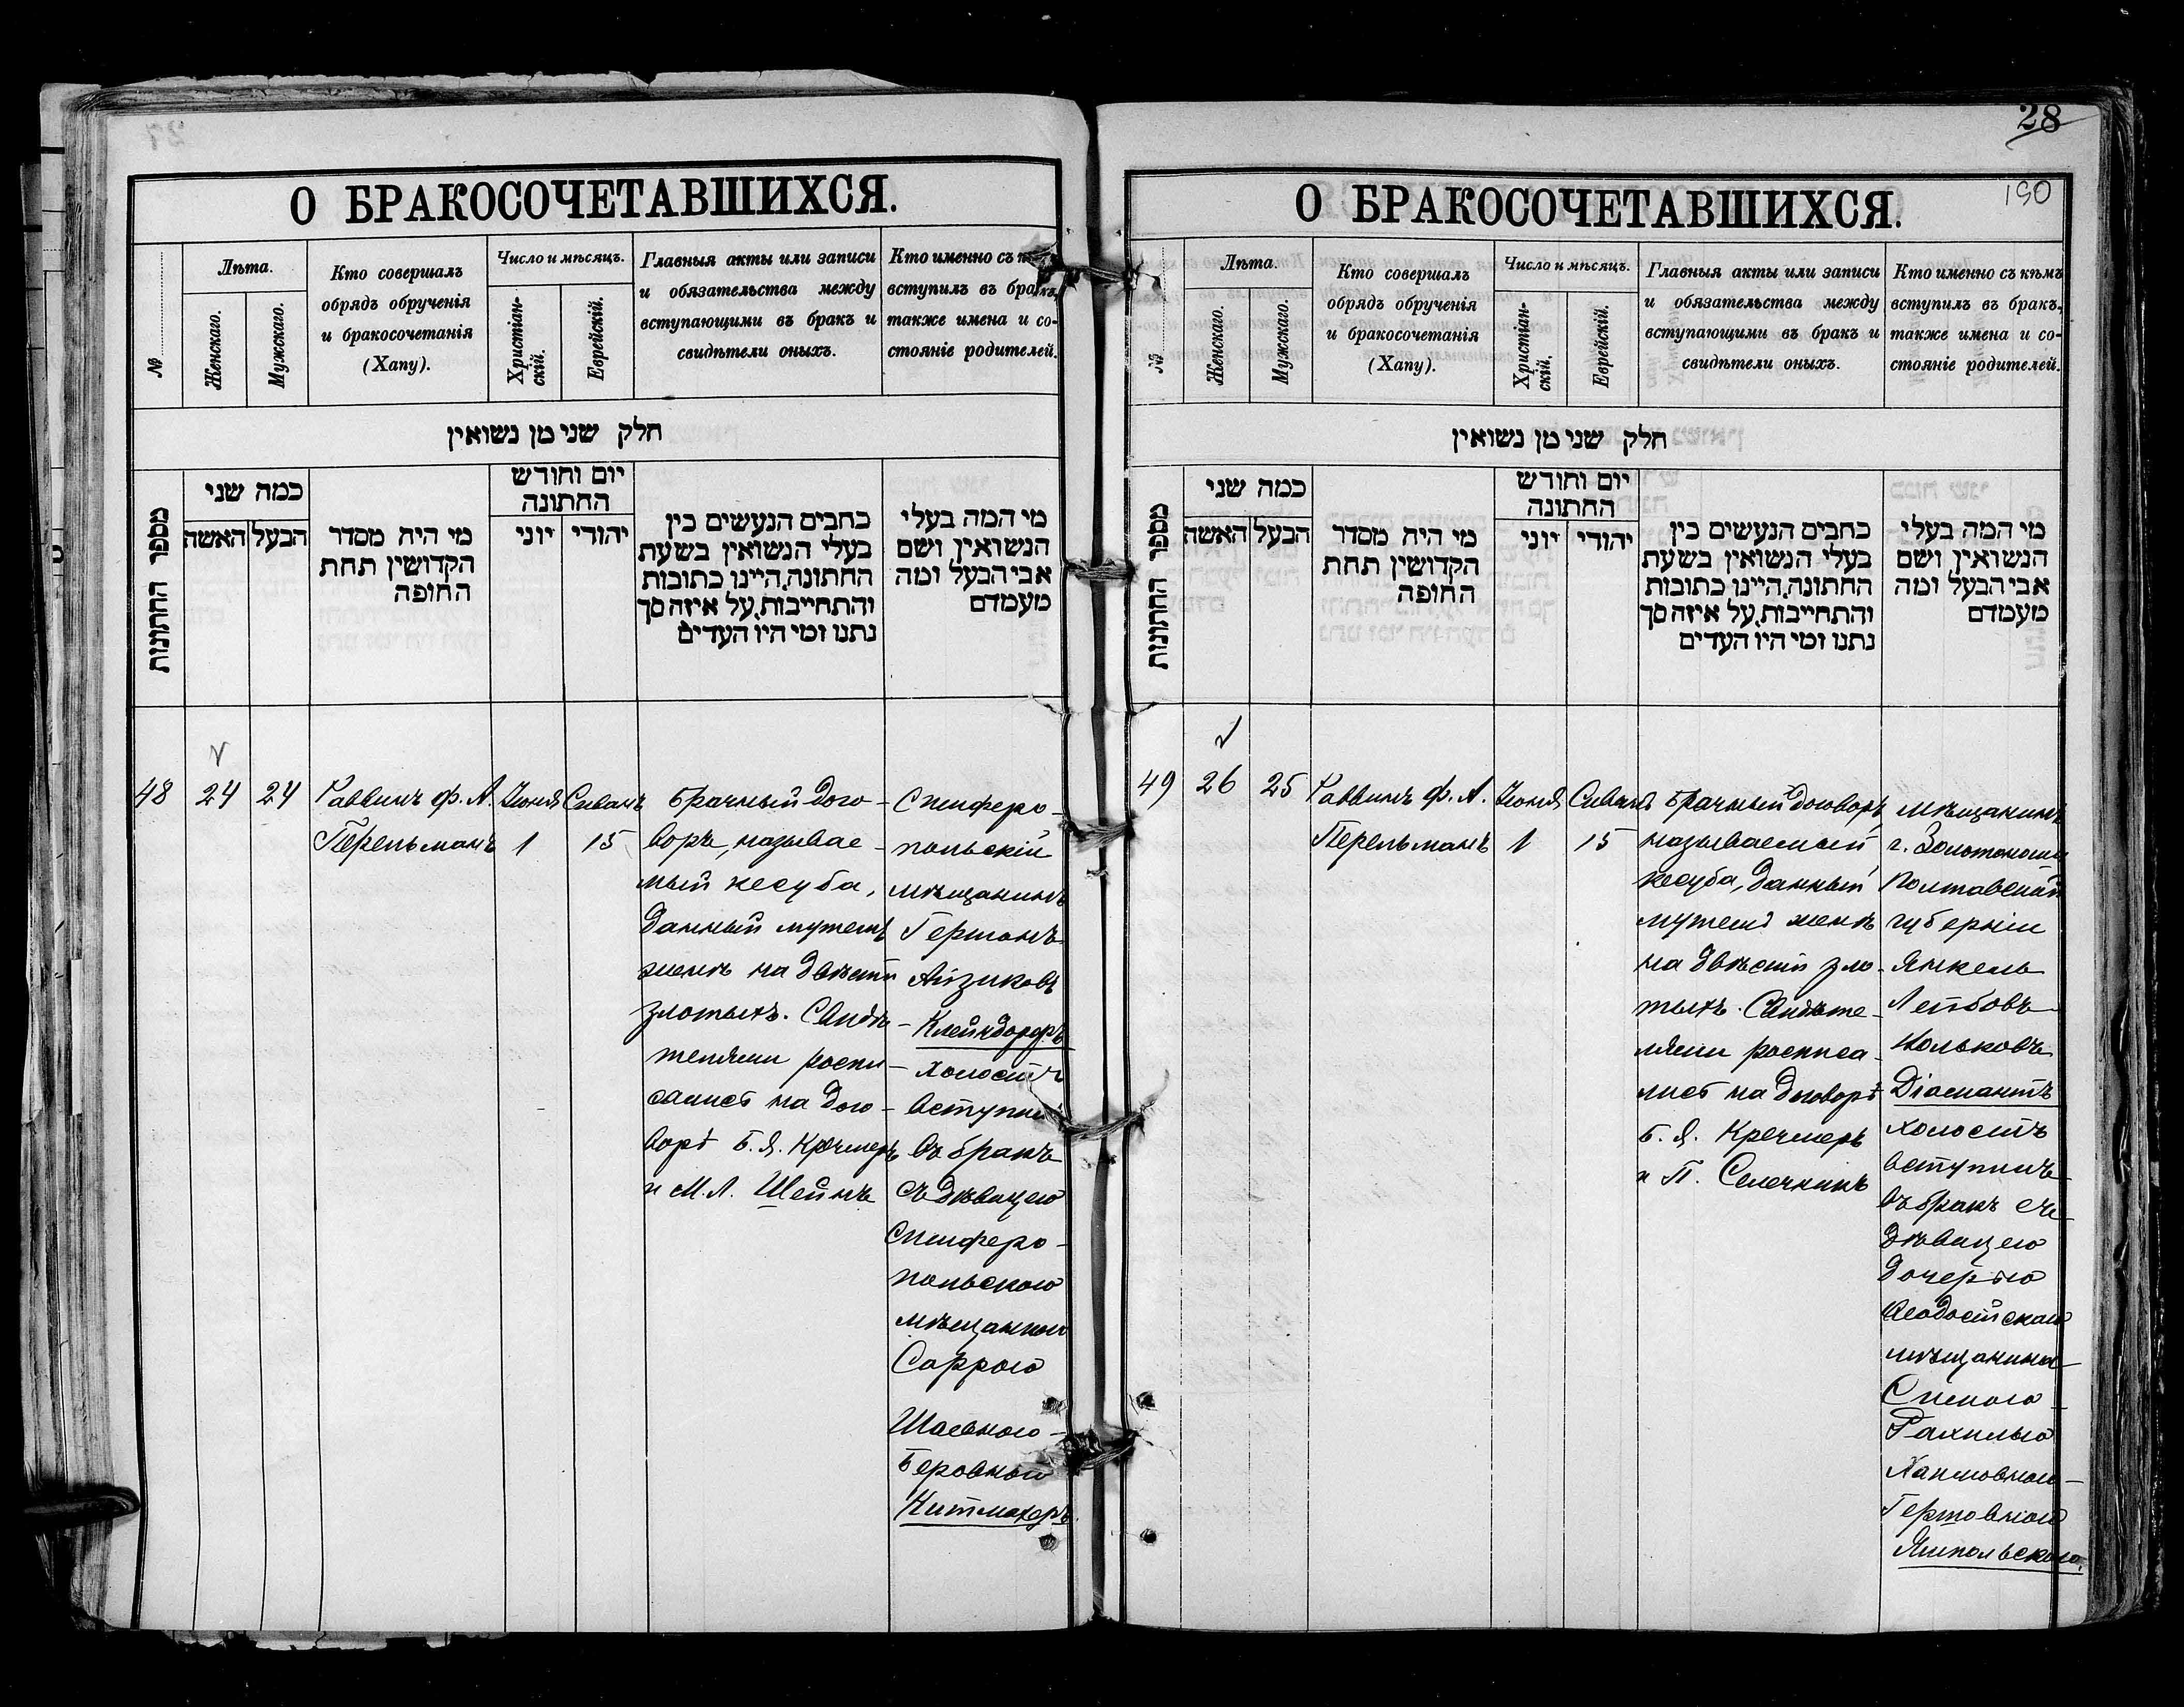 27
О БРАКОСОЧЕТАВШИХСЯ.
№
Лѣта.
Женскаго.
Мужскаго.
Кто совершалъ
обрядъ обрученія
и бракосочетанія
(Хапу).
Число и мѣсяцъ.
Христіан-
скій.
Еврейскій.
Главныя акты или записи
и обязательства между
вступающими въ бракъ и
свидѣтели оныхъ.
Кто именно съ
вступилъ въ бракъ,
также имена и со-
стояніе родителей.
חלק שני מן נשואין
מספר החתונות
כמה שני
האשה
הבעל
מי היה מסדר
הקדושין תחת
החופה
יום וחודש
החתונה
יוני
יהודי
כתבים הנעשים בין
בעלי הנשואין בשעת
החתונה,היינו כתובות
והתחייבות,על איזה סך
נתנו ומי היו העדים
מי המה בעלי
הנשואין ושם
אבי הבעל ומה
מעמדם
48
24
24
Раввинъ Ф. А.
Перельманъ
Іюня
1
Сиванъ
15
Брачный дого-
воръ, называе-
мый кесуба,
данный мужемъ
женѣ на двѣсти
злотыхъ. Свидѣ-
телями роспи-
сались на дого-
ворѣ Б. Я. Кречмеръ
и М. Л. Шейнъ
Симферо-
польскій
мѣщанинъ
Германъ
Айзиковъ
Клейндорфъ
холостъ
вступилъ
въ бракъ
съ дѣвицею
Симферо-
польскою
мѣщанкою
Саррою
Шаевною-
Беровною
Китмахеръ.
28
190
О БРАКОСОЧЕТАВШИХСЯ.
№
Лѣта.
Женскаго.
Мужскаго.
Кто совершалъ
обрядъ обрученія
и бракосочетанія
(Хапу).
Число и мѣсяцъ.
Христіан-
скій.
Еврейскій.
Главныя акты или записи
и обязательства между
вступающими въ бракъ и
свидѣтели оныхъ.
Кто именно съ кѣмъ
вступилъ въ бракъ,
также имена и со-
стояніе родителей.
חלק שני מן נשואין
מספר החתונות
כמה שני
האשה
הבעל
מי היה מסדר
הקדושין תחת
החופה
יום וחודש
החתונה
יוני
יהודי
כתבים הנעשים בין
בעלי הנשואין בשעת
החתונה,היינו כתובות
והתחייבות,על איזה סך
נתנו ומי היו העדים
מי המה בעלי
הנשואין ושם
אבי הבעל ומה
מעמדם
49
26
25
Раввинъ Ф. А.
Перельманъ
Іюня
1
Сиванъ
15
Брачный договоръ,
называемый
кесуба, данный
мужемъ женѣ
на двѣсти зло-
тыхъ. Свидѣте-
лями росписа-
лись на договорѣ
Б. Я. Кречмеръ
и П. Селечникъ
Мѣщанинъ
г. Золотоноши
Полтавской
губерніи
Янкель
Лейбовъ
Іольковъ
Діамантъ
холостъ
вступилъ
въ бракъ съ
дѣвицею
дочерью
Ѳеодосійскаго
мѣщанина
Симою
Рахилью
Хаимовною-
Гершовною
Ямпольскою.